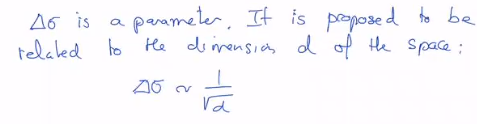 Δσ is a parameter. It is proposed to be
related to the dimension d of the space:
Δσ ~ 1/√d